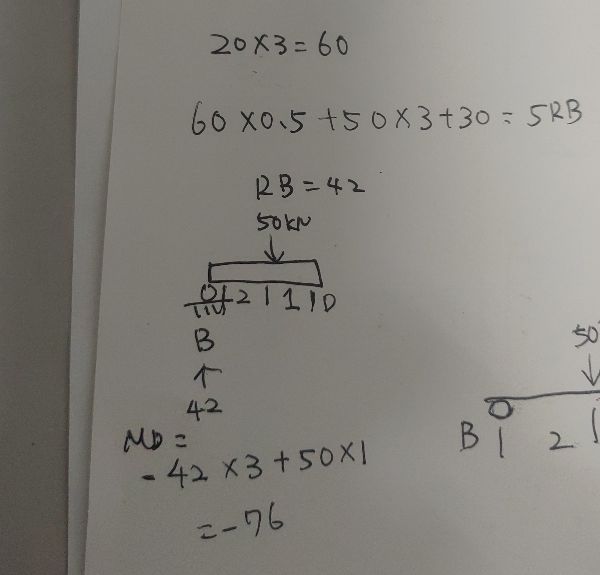 20×3=60
60×0.5+50×3+30=5RB
RB=42
50kN
2 1 1 D
B
↑
42
MD=
-42×3+50×1
=-76
50
B 2